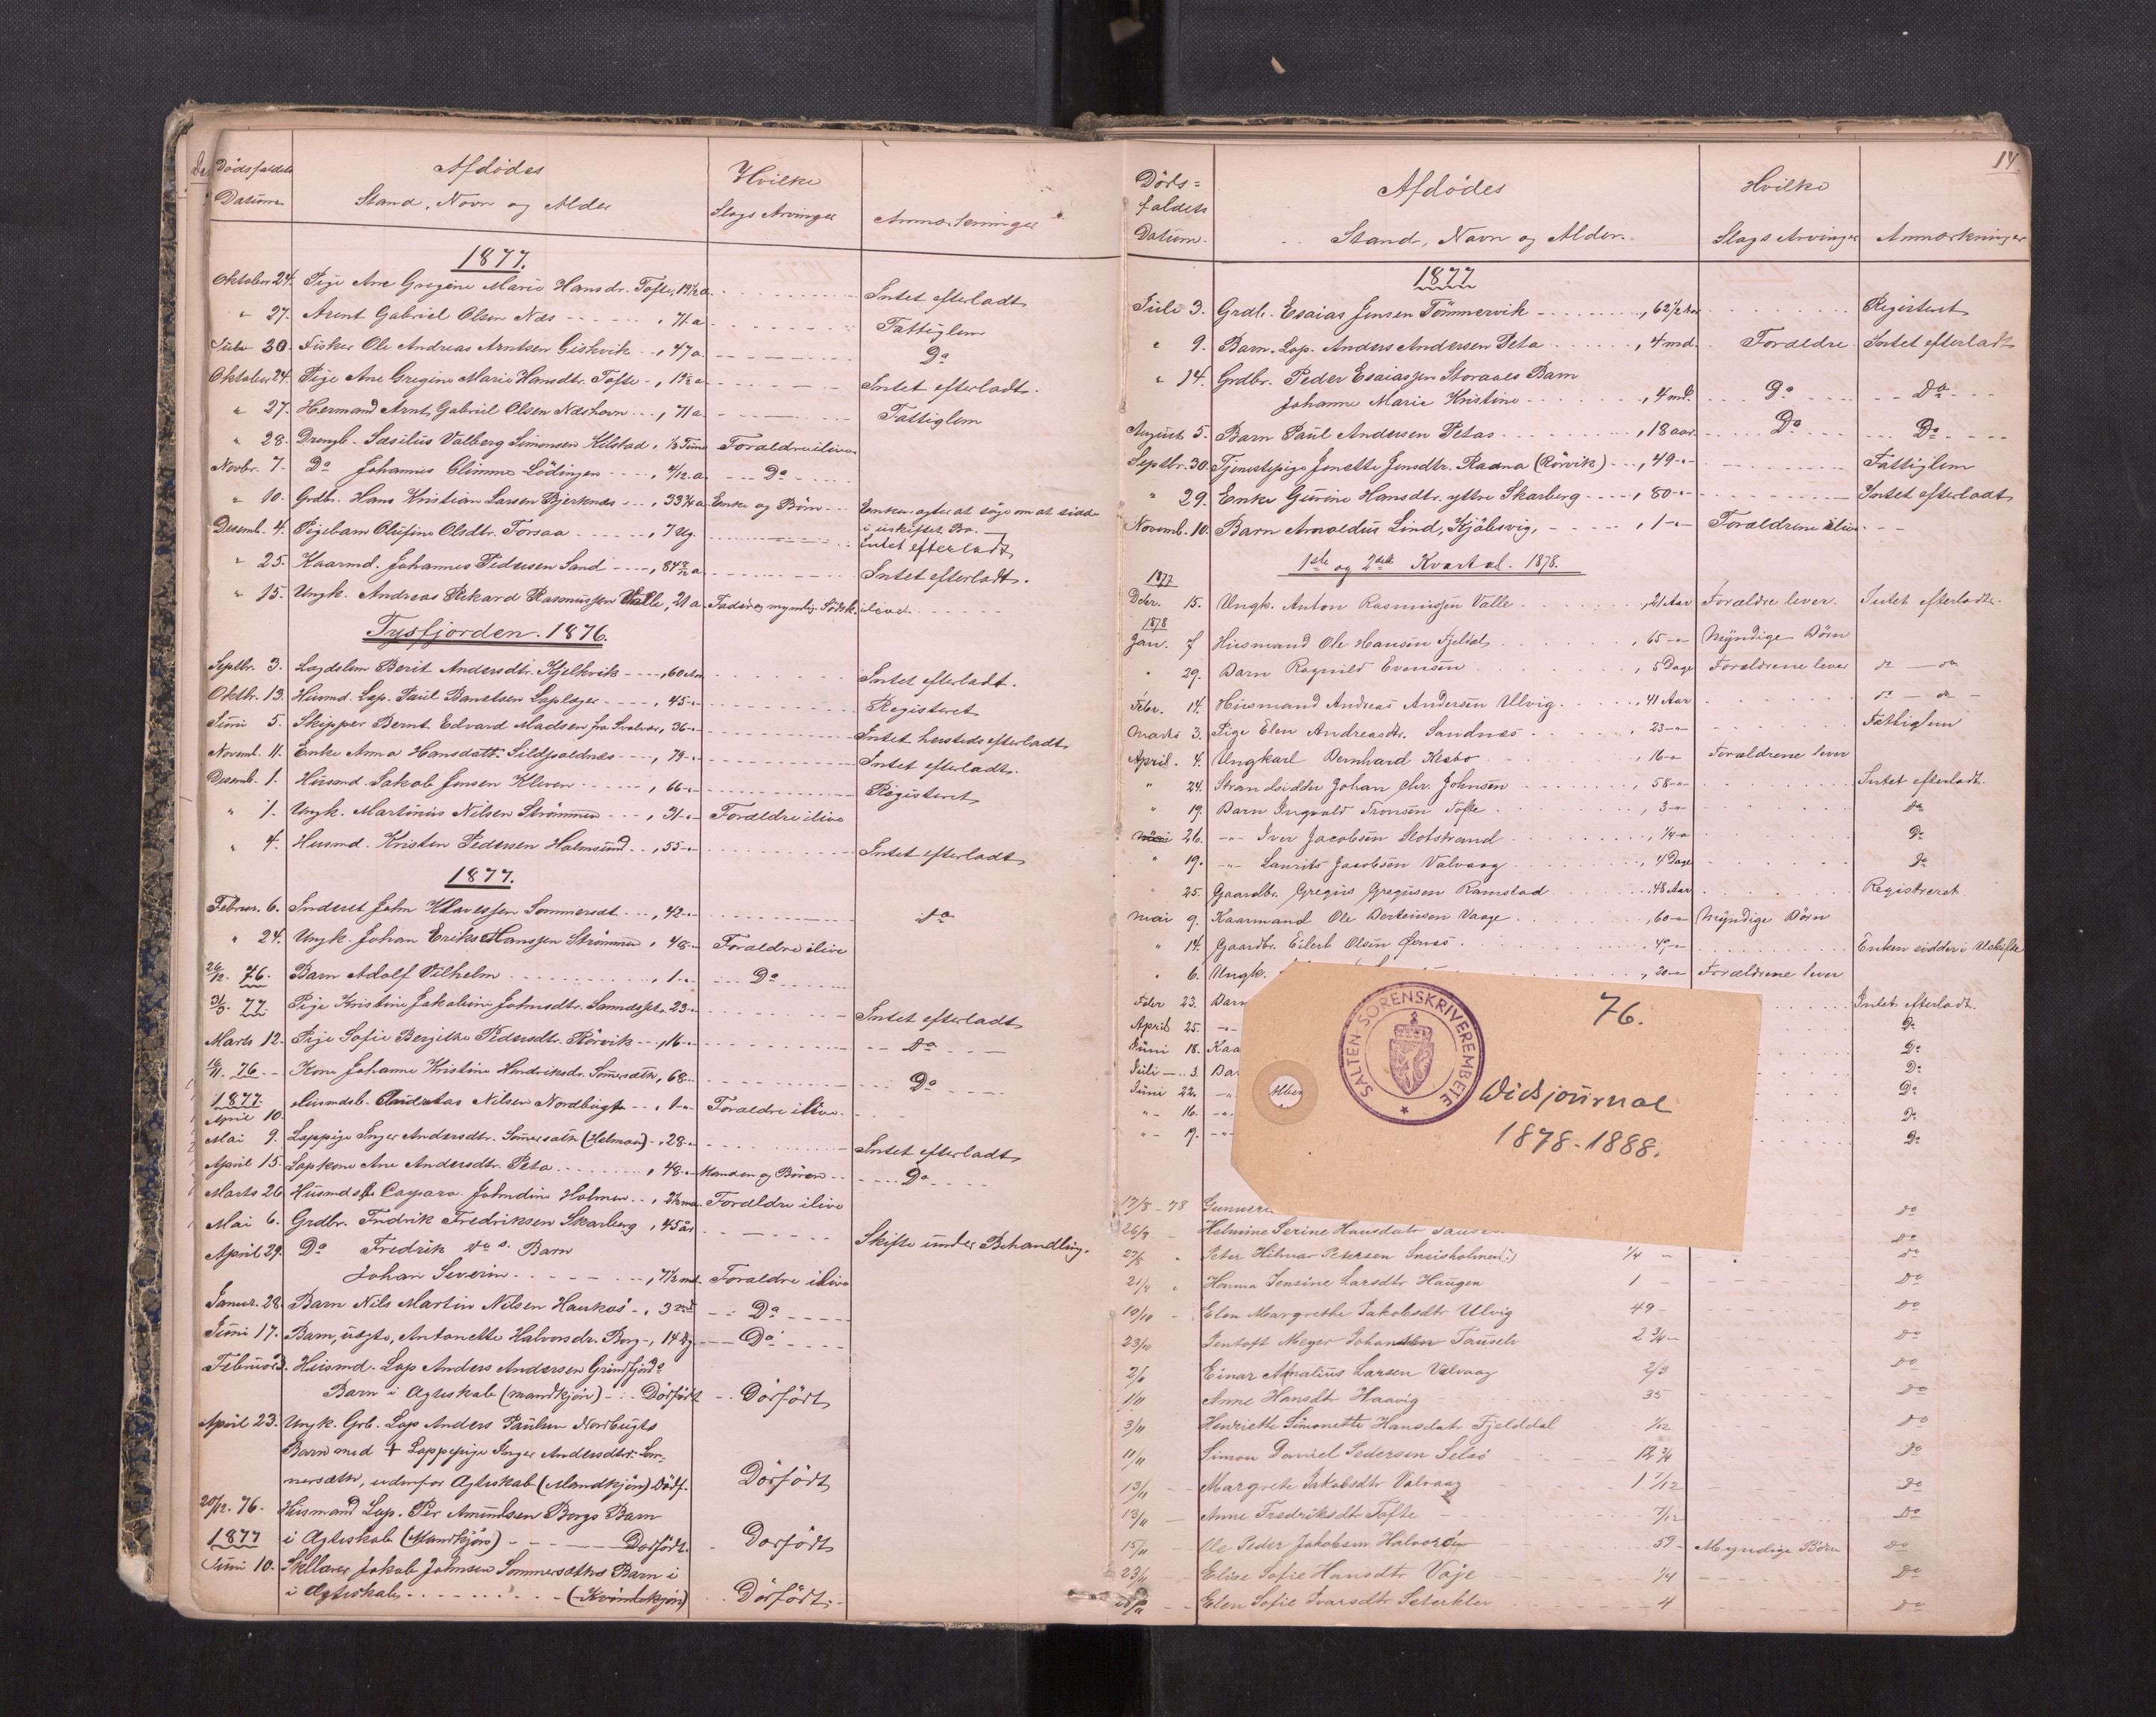 Dødsfaldets
Datum
Afdødes
Stand, Navn og Alder
Hvilke
Slags Arvinger
Anmærkninger
1877.
Oktober 24. Pige Ane Gregine Marie Hansdr. Tofte, 19½ a. Intet efterladt
" 27. Arent Gabriel Olsen Næs , 71 a Fattiglem
30. Fisker Ole Andreas Arntsen Giskvik , 47 a. Do
Oktober 24. Pige Ane Gregine Marie Hansdtr. Tofte , 19½ a Intet efterladt.
" 27. Hermand Arnt Gabriel Olsen , 71 a Fattiglem
" 28. Drengb. Simonsen Kilstad, ½ Time Forældre ilive
Novbr. 7. Do Johannes Glimme Lødingen , 4/12 a. Do
" 10. Grdbr. Hans Kristian Larsen Bjerknes , 33¼ a Enke og Børn Enken agter at søge om at sidde
i uskiftet Bo.
Desemb. 4. Pigebarn Olufine Olsdtr. Forsaa , 7 Ug. Intet efterladt
" 25. Kaarmd. Johannes Pedersen Sand , 84 a Intet efterladt.
" 15. Ungk. Andreas Rikard Rasmussen Valle, 21 a Fader og myndig Sødsk. ilive
Tysfjorden. 1876.
Septbr. 3. Lægdslem Berit Andersdtr. Kjelkvik , 60 Intet efterladt.
Oktbr. 13. Husmd. Lap. Paul Lapløger , 45 Registeret
Juni 5. Skipper Bernt Edvard Madsen fra Svolvær, 36 Intet hersteds efterladt
Novemb. 11. Enke Anna Hansdatt. , 79 Intet efterladt.
Desemb. 1. Husmd. Jakob Jensen Kleven , 66 Registeret
" 1. Ungk. Martinus Nilsen Strømmen , 31 Forældre ilive
" 4. Husmd. Kristen Pedersen Halmsund , 55 Intet efterladt
1877.
Februar. 6. Inderst John Klavessen Sommersæt , 42 Do
" 24. Ungk. Johan Eriks Hanssen Strømmen , 48 Forældre ilive
26/12. 76. Barn Adolf Vilhelm , 1 Do
31/3. 77. Pige Kristine Jakobine Johnsdtr. 23 Intet efterladt
Marts 12. Pige Sofie Bergitte Pedersdtr. Rørvik , 16 Do
16/11. 76. Kone Johanne Kristine Hendriksdr. Somersæth, 68 Do
1877.
April 10. Husmdsb. Andreas Nilsen Nordbugt , 1 Forældre ilive
Mai 9. Lappige Inger Andersdtr. Somersæth (Helman) , 28 Intet efterladt
April 15. Lapkone Ane Andersdtr. Peta , 48 Manden og Børen Do
Marts 26 Husmdsb. Caspara Johndine Holmen , 2½ md Forældre ilive
Mai 6. Grdbr. Fredrik Fredriksen Skarberg , 45 år Skifte under Behandling.
April 29. Do Fredrik Do s. Barn
Johan Severin , 7½ md. Forældre ilive
Januar. 28. Barn Nils Martin Nilsen Haukøi , 3 Do
Juni 17. Barn, uægte, Antonette Halvorsdr. Borg , 14 Dg Do
Februar 3. Husmd. Lap Anders Andersen Grundfjord
Barn i Ægteskab (mandkjøn) Dødfødt Dødfødt
April 23. Ungk. Grb. Lap Anders Paulsen Norbugts
Barn med Lappepige Inger Andersdtr. Som-
mersæth, udenfor Ægteskab (Mandkjøn) Dødf. Dødfødt
20/12. 76. Husmand Lap. Per Amundsen Borgs Barn
1877 i Ægteskab (Mandkjøn) Dødfødt. Dødfødt
Juni 10. Jakob Johnsen Sommersæths Barn i
i Ægteskab (Kvindekjøn) Dødfødt.
14.
Døds=
faldets
Datum.
Afdødes
Stand, Navn og Alder.
Hvilke
Slags Arvinger
Anmærkninger
1877
Juli 3. Grdb. Esaias Jensen Tømmervik , 62½ Registeret
" 9. Barn. Lap. Anders Andersen Peta , 4 md. Forældre Intet efterladt
" 14. Grdbr. Peder Esaiassen Storaaes Barn
Johanne Marie Kristine , 4 md. Do Do
August 5. Barn Paul Andersen Petas , 18 aar Do Do
Septbr. 30. Tjenestepige Jonette Jensdtr. Raana (Rørvik) , 49 Fattiglem
" 29. Enke Gurine Hansdtr. yttre Skarberg , 80 Intet efterladt
Novemb. 10. Barn Arnoldus Lind, Kjøbsvig, , 1 Forældrene ilive
1ste og 2det Kvartal. 1878.
1877
Deber. 15. Ungk. Anton Rasmussen Valle , 21 Aar Forældre lever. Intet efterladt.
1878
Jan. 7 Husmand Ole Hansen Fjeldal , 65 Myndige Børn
" 29. Barn Ragnild Evensen , 5 Dage Forældrene lever do
Febr. 14. Husmand Andreas Andersen Ulvig , 41 Aar do
Marts 3. Pige Elen Andreasdtr. Sandnæs , 23 Fattiglem
April. 4. Ungkarl Bernhard Næsbø , 16 Forældrene lever
" 24. Strandsidder Johan Chr. Johnsen , 58 Intet efterladt.
" 19. Barn Ingvald Tronsen Tofte , 3 Do
26. Iver Jacobsen Slotstrand , ¼ Do
" 19. Laurits Jacobsen Valvaag , 4 Dage Do
" 25. Gaardbr. Gregus Gregusen Ramstad , 48 Aar Registreret
Mai 9. Kaarmand Ole Bertensen Vaage , 60 Myndige Børn
" 14. Gaardbr. Eilert Olsen Ørnes , 49 Enken sidder i Uskifte
" 6. Ungk. , 20 Forældrene lever
Feber 23. Barn Intet efterladt.
April 25. Do
Juni 18. Kaa Do
Juli 3. Ba Do
Juni 22. Do
" 16. Do
" 9. Do
SALTEN SORENSKRIVEREMBETE
76.
Didsjournal
1878-1888.
17/8 - 78 Do
26/9 Helmine Serine Hansdatr Do
27/8 Peter Hilmar Petersen Sneisholmen ¼ Do
21/9 Hanna Jensine Larsdtr Haugen 1 Do
10/10 Elen Margrethe Jakobsdtr Ulvig 49 Do
23/10 Pentoft Meyer Johansen 2¾ Do
2/6 Einar Amalius Larsen Valvaag 2/3 Do
1/11 Anne Hansdtr Haavig 35 Do
3/11 Henriette Simonette Hansdatr Fjelddal 1/12 Do
11/11 Simon Daniel Pedersen Selsø 12¾ Do
13/11 Margrete Jakobsdtr Valvaag 1 7/12 Do
13/11 Anne Fredriksdtr Tofte 7/12 Do
15/11 Ole Peder Jakobsen Halvorøen 59 Myndige Børn Do
23/11 Elise Sofie Hansdtr Vaje ¼ Do
Elen Sofie Ivarsdtr 4 Do